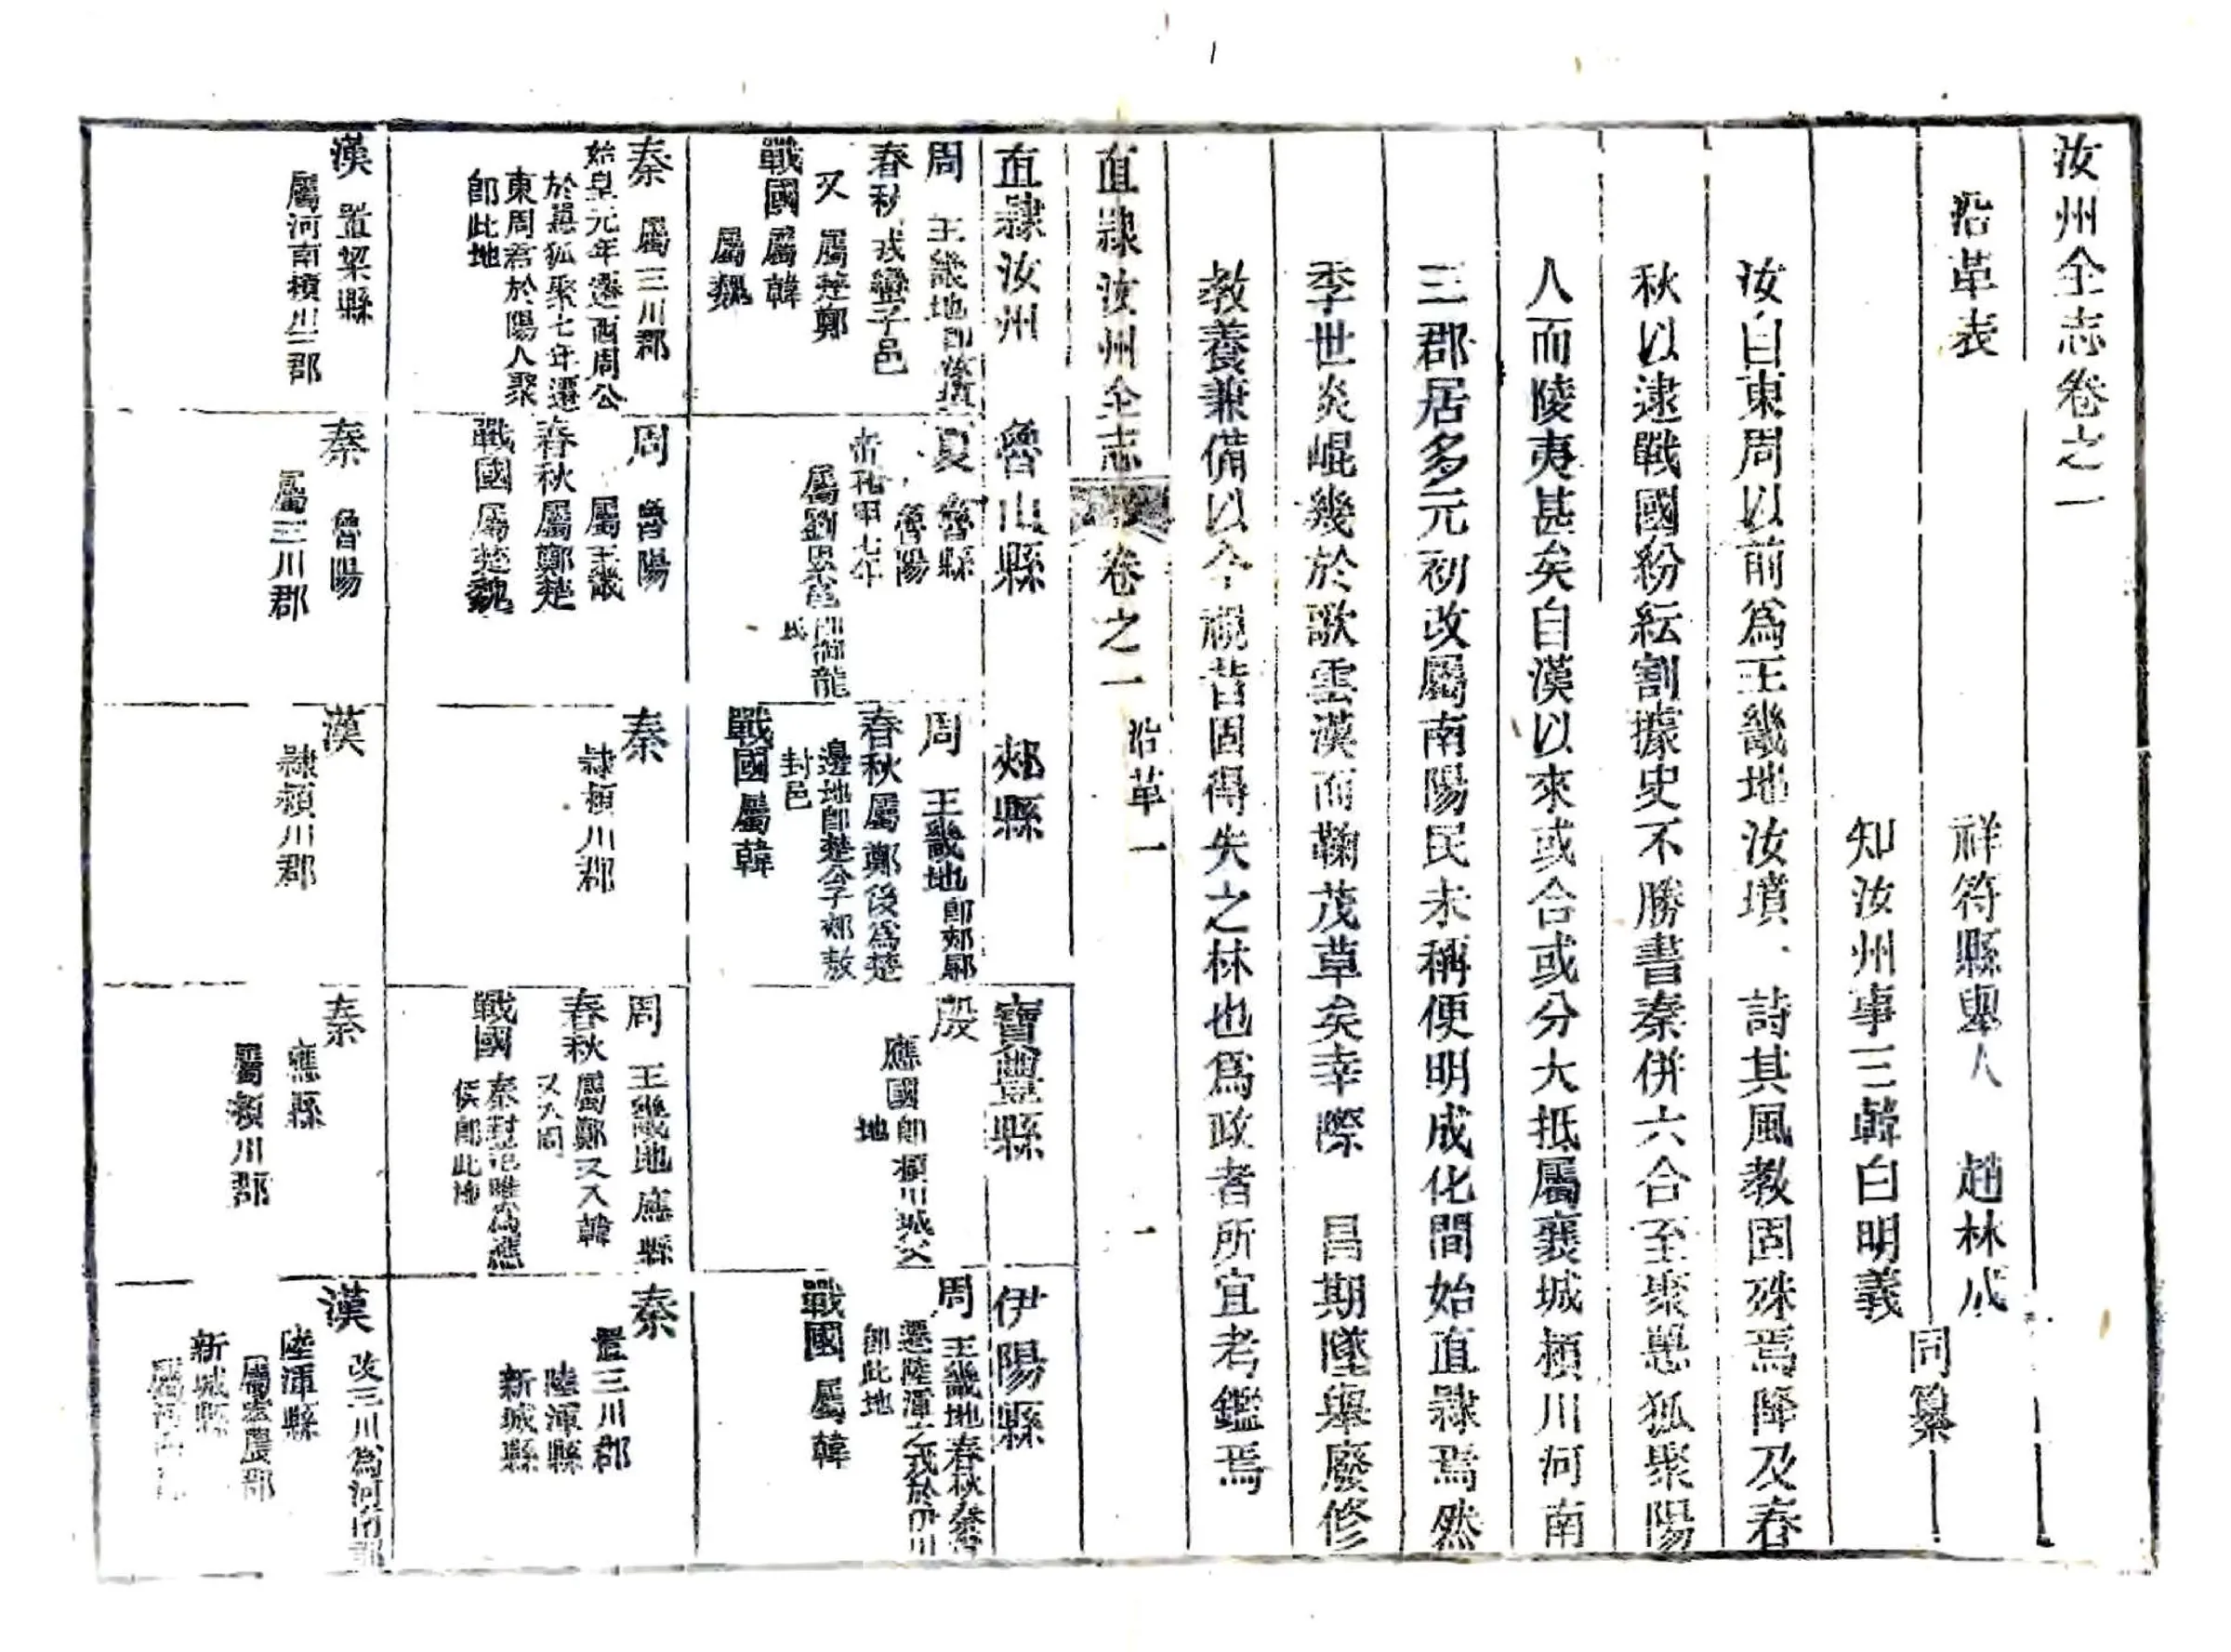 汝州全志卷之一
沿革表
祥符縣舉人 趙林成
知汝州事三韓白明義
同纂
汝自東周以前爲王畿地汝墳 詩其風教固殊焉降及春
秋以逮戰國紛紜割據史不勝書秦併六合至聚㥏狐聚陽
人而陵夷甚矣自漢以來或合或分大抵屬襄城潁川河南
三郡居多元初改屬南陽民未稱便明成化間始直隸焉然
季世炎崐幾於歌雲漢而鞠茂草矣幸際 昌期墜舉廢修
教養兼備以今視昔固得失之林也爲政者所宜考鑑焉
直隸汝州全志
卷之一
沿革一
一
直隸汝州
周 王畿地
春秋 戎蠻子邑
又 屬楚鄭
戰國 屬韓
屬魏
秦 屬三川郡
始皇元年遷西周公
於㥏狐聚七年遷
東周君於陽人聚
即此地
漢 置梁縣
屬河南潁川二郡
魯山縣
夏 魯縣
魯陽
孔甲七年
屬劉累邑 御龍
氏
周 魯陽
屬王畿
春秋 屬鄭楚
戰國 屬楚魏
秦 魯陽
屬三川郡
郟縣
周 王畿地 即郟鄏
春秋 屬鄭後爲楚
邊地即楚公子郟敖
封邑
戰國 屬韓
秦
隸潁川郡
漢
隸潁川郡
寶豐縣
殷
應國 即潁川城父
地
周 王畿地應縣
春秋 屬鄭又入韓
又入周
戰國 秦封范睢爲應
侯即此地
秦
應縣
屬潁川郡
伊陽縣
周 王畿地春秋秦晉
遷陸渾之戎於伊川
即此地
戰國 屬韓
秦
置三川郡
陸渾縣
新城縣
漢 改三川爲河南郡
陸渾縣
屬宏農郡
新城縣
屬河南